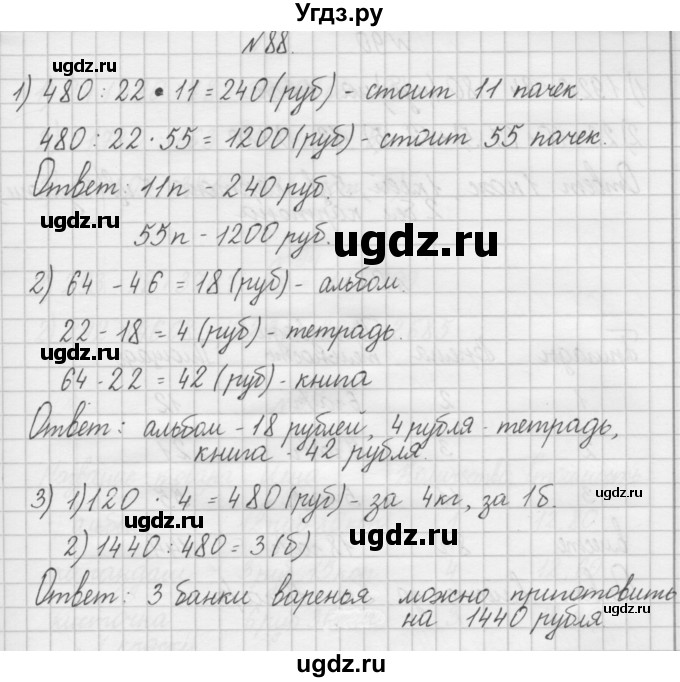 Угдз.ру
№88.
1) 480 : 22 · 11 = 240 (руб) - стоит 11 пачек.
480 : 22 · 55 = 1200 (руб) - стоит 55 пачек.
Ответ: 11п - 240 руб.
55п - 1200 руб.
2) 64 - 46 = 18 (руб) - альбом.
22 - 18 = 4 (руб) - тетрадь.
64 - 22 = 42 (руб) - книга
Ответ: альбом - 18 рублей, 4 рубля - тетрадь,
книга - 42 рубля.
3) 1) 120 · 4 = 480 (руб) - за 4кг, за 1б.
2) 1440 : 480 = 3 (б)
Ответ: 3 банки варенья можно приготовить
на 1440 рубля.
ugdz.ru
ugdz.ru
ugdz.ru
ugdz.ru
ugdz.ru
ugdz.ru
ugdz.ru
ugdz.ru
ugdz.ru
ugdz.ru
ugdz.ru